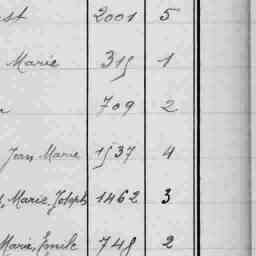 st 2001 5
Marie 315 1
709 2
Jean Marie 1537 4
Marie, Joseph 1462 3
Marie, Emile 745 2